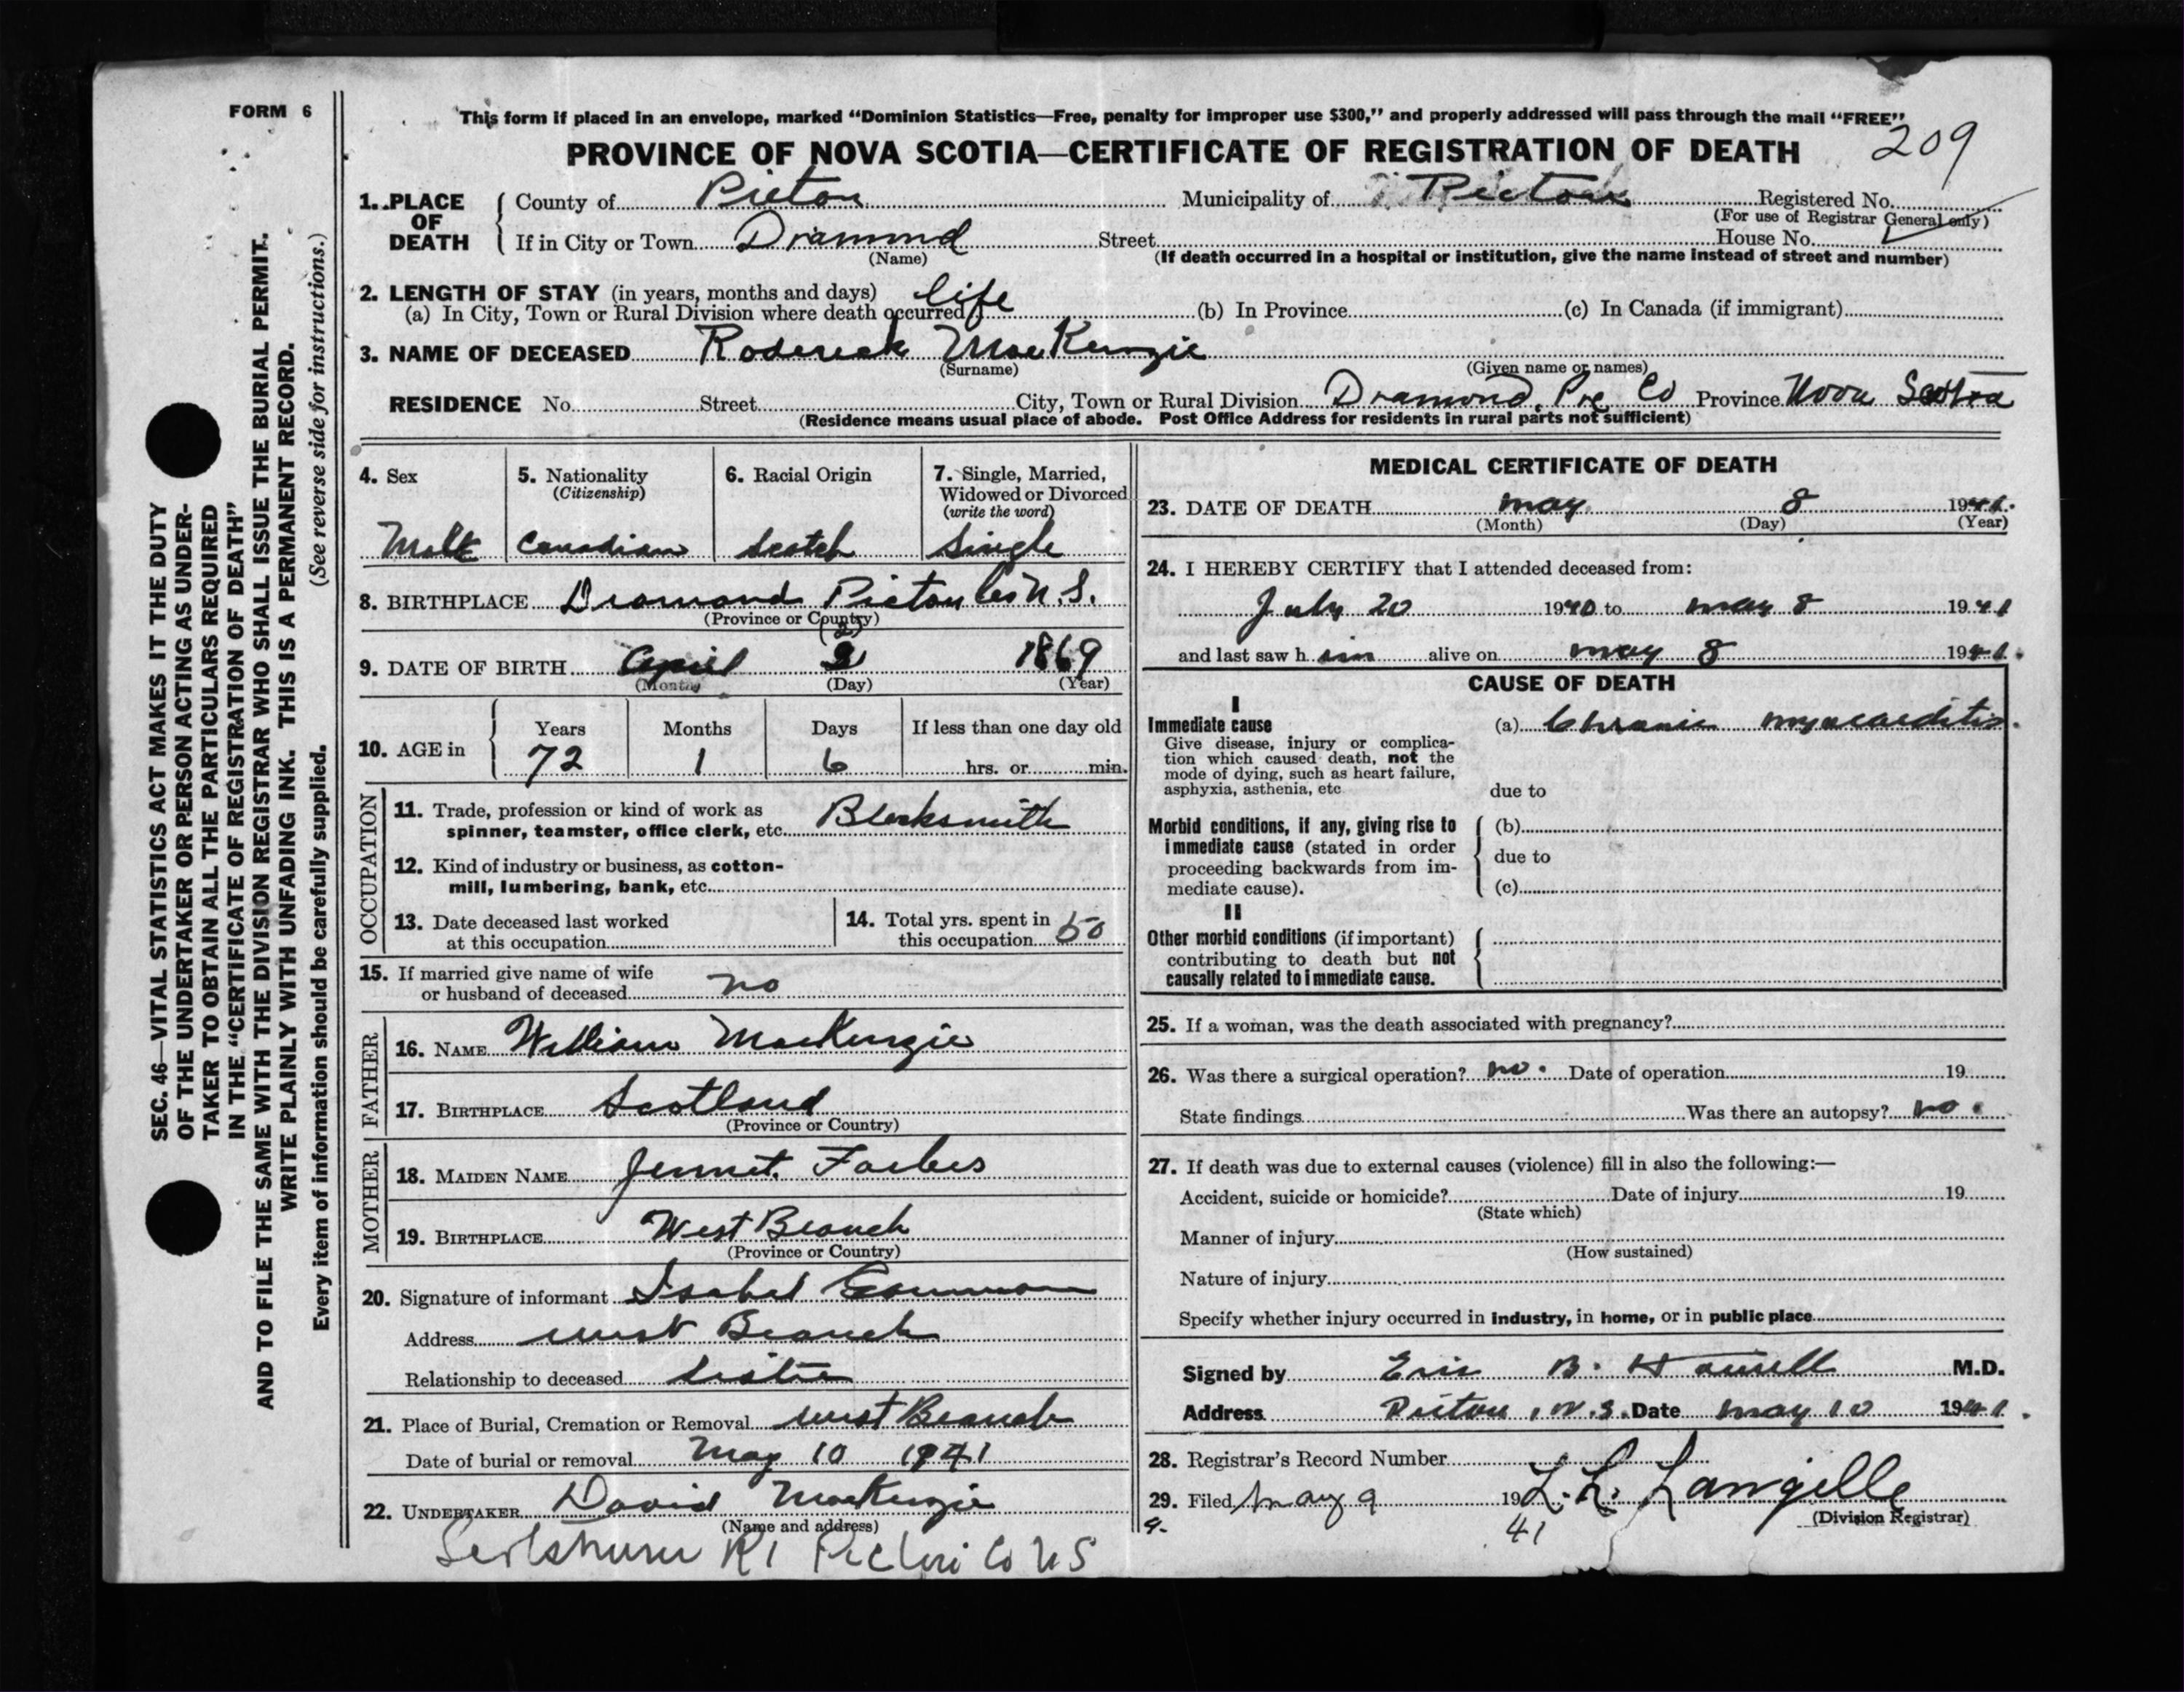 FORM 6
This form if placed in an envelope, marked “Dominion Statistics—Free, penalty for improper use $300,” and properly addressed will pass through the mail “FREE”
PROVINCE OF NOVA SCOTIA—CERTIFICATE OF REGISTRATION OF DEATH 209
1. PLACE OF DEATH
County of Pictou Municipality of Pictou Registered No.
(For use of Registrar General only)
If in City or Town Diamond Street House No.
(Name) (If death occurred in a hospital or institution, give the name instead of street and number)
2. LENGTH OF STAY (in years, months and days)
(a) In City, Town or Rural Division where death occurred life (b) In Province (c) In Canada (if immigrant)
3. NAME OF DECEASED Roderick MacKenzie
(Surname) (Given name or names)
RESIDENCE No. Street City, Town or Rural Division Diamond, Co Province Nova Scotia
(Residence means usual place of abode. Post Office Address for residents in rural parts not sufficient)
4. Sex
Male
5. Nationality
(Citizenship)
Canadian
6. Racial Origin
Scotch
7. Single, Married,
Widowed or Divorced
(write the word)
Single
8. BIRTHPLACE Diamond Pictou Co N.S.
(Province or Country)
(2)
9. DATE OF BIRTH April 2 1869
(Month) (Day) (Year)
10. AGE in
Years Months Days If less than one day old
72 1 6 hrs. or min.
OCCUPATION
11. Trade, profession or kind of work as
spinner, teamster, office clerk, etc. Blacksmith
12. Kind of industry or business, as cotton-
mill, lumbering, bank, etc.
13. Date deceased last worked
at this occupation
14. Total yrs. spent in
this occupation 50
15. If married give name of wife
or husband of deceased no
FATHER
16. NAME William MacKenzie
17. BIRTHPLACE Scotland
(Province or Country)
MOTHER
18. MAIDEN NAME Jennet. Forbes
19. BIRTHPLACE West Branch
(Province or Country)
20. Signature of informant Isabel
Address West Branch
Relationship to deceased Sister
21. Place of Burial, Cremation or Removal West Branch
Date of burial or removal May 10 1941
22. UNDERTAKER David MacKenzie
(Name and address)
R1 Pictou Co NS
MEDICAL CERTIFICATE OF DEATH
23. DATE OF DEATH May 8 1941.
(Month) (Day) (Year)
24. I HEREBY CERTIFY that I attended deceased from:
July 20 1940 to May 8 1941
and last saw him alive on May 8 1941.
CAUSE OF DEATH
I
Immediate cause (a) Chronic myocarditis.
Give disease, injury or complica-
tion which caused death, not the
mode of dying, such as heart failure,
asphyxia, asthenia, etc
due to
Morbid conditions, if any, giving rise to
immediate cause (stated in order
proceeding backwards from im-
mediate cause).
(b)
due to
(c)
II
Other morbid conditions (if important)
contributing to death but not
causally related to immediate cause.
25. If a woman, was the death associated with pregnancy?
26. Was there a surgical operation? no. Date of operation 19
State findings Was there an autopsy? no.
27. If death was due to external causes (violence) fill in also the following:—
Accident, suicide or homicide? Date of injury 19
(State which)
Manner of injury
(How sustained)
Nature of injury
Specify whether injury occurred in industry, in home, or in public place
Signed by Eric B. M.D.
Address Pictou, N.S. Date May 10 1941.
28. Registrar's Record Number
29. Filed May 9 19 41 L. R. Langille
(Division Registrar)
SEC. 46—VITAL STATISTICS ACT MAKES IT THE DUTY
OF THE UNDERTAKER OR PERSON ACTING AS UNDER-
TAKER TO OBTAIN ALL THE PARTICULARS REQUIRED
IN THE “CERTIFICATE OF REGISTRATION OF DEATH”
AND TO FILE THE SAME WITH THE DIVISION REGISTRAR WHO SHALL ISSUE THE BURIAL PERMIT.
WRITE PLAINLY WITH UNFADING INK. THIS IS A PERMANENT RECORD.
Every item of information should be carefully supplied. (See reverse side for instructions.)